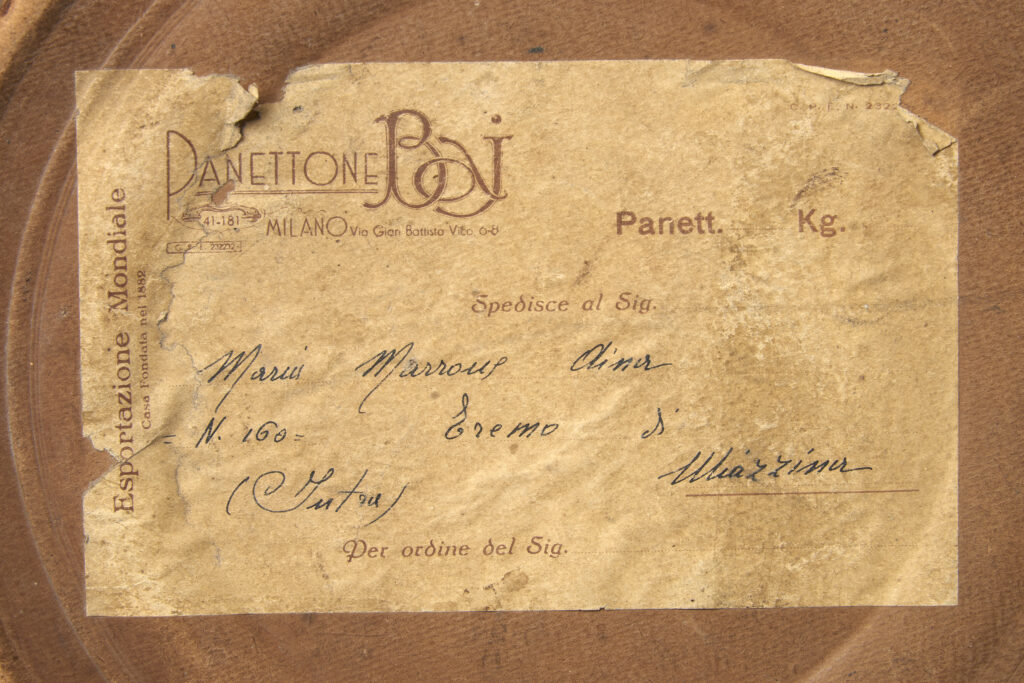 C. P. E. N. 232
PANETTONE Baj
41-181
MILANO Via Gian Battista Vico, 6-8
C. P. E. 232232
Panett. Kg.
Esportazione Mondiale
Casa Fondata nel 1882
Spedisce al Sig.
Maria Dina
= N. 160 = Eremo di
Miazzina
(Intra)
Per ordine del Sig.